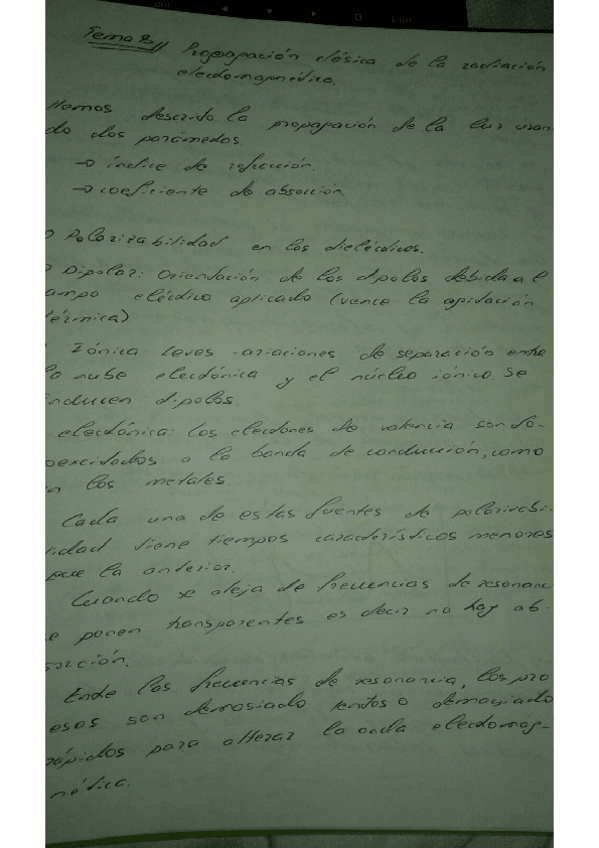 Tema 2.// Propagación clásica de la radiación
electromagnética.
Hemos descrito la propagación de la luz usan
do dos parámetros.
→ índice de refracción.
→ coeficiente de absorción.
Polarizabilidad en los dieléctricos.
Dipolar: Orientación de los dipolos debida al
ampo eléctrico aplicado (vence la agitación
térmica)
Iónica: Leves variaciones de separación entre
la nube electrónica y el núcleo iónico. Se
inducen dipolos.
electrónica: Los electrones de valencia son fo-
oexcitados a la banda de conducción, como
n los metales.
Cada una de estas fuentes de polarizabi-
lidad tiene tiempos característicos menores
que la anterior.
Cuando se aleja de frecuencias de resonanc
e ponen transparentes es decir no hay ab-
sorción.
Entre las frecuencias de resonancia, los pro
esos son demasiado lentos o demasiado
rápidos para alterar la onda electromag-
nética.